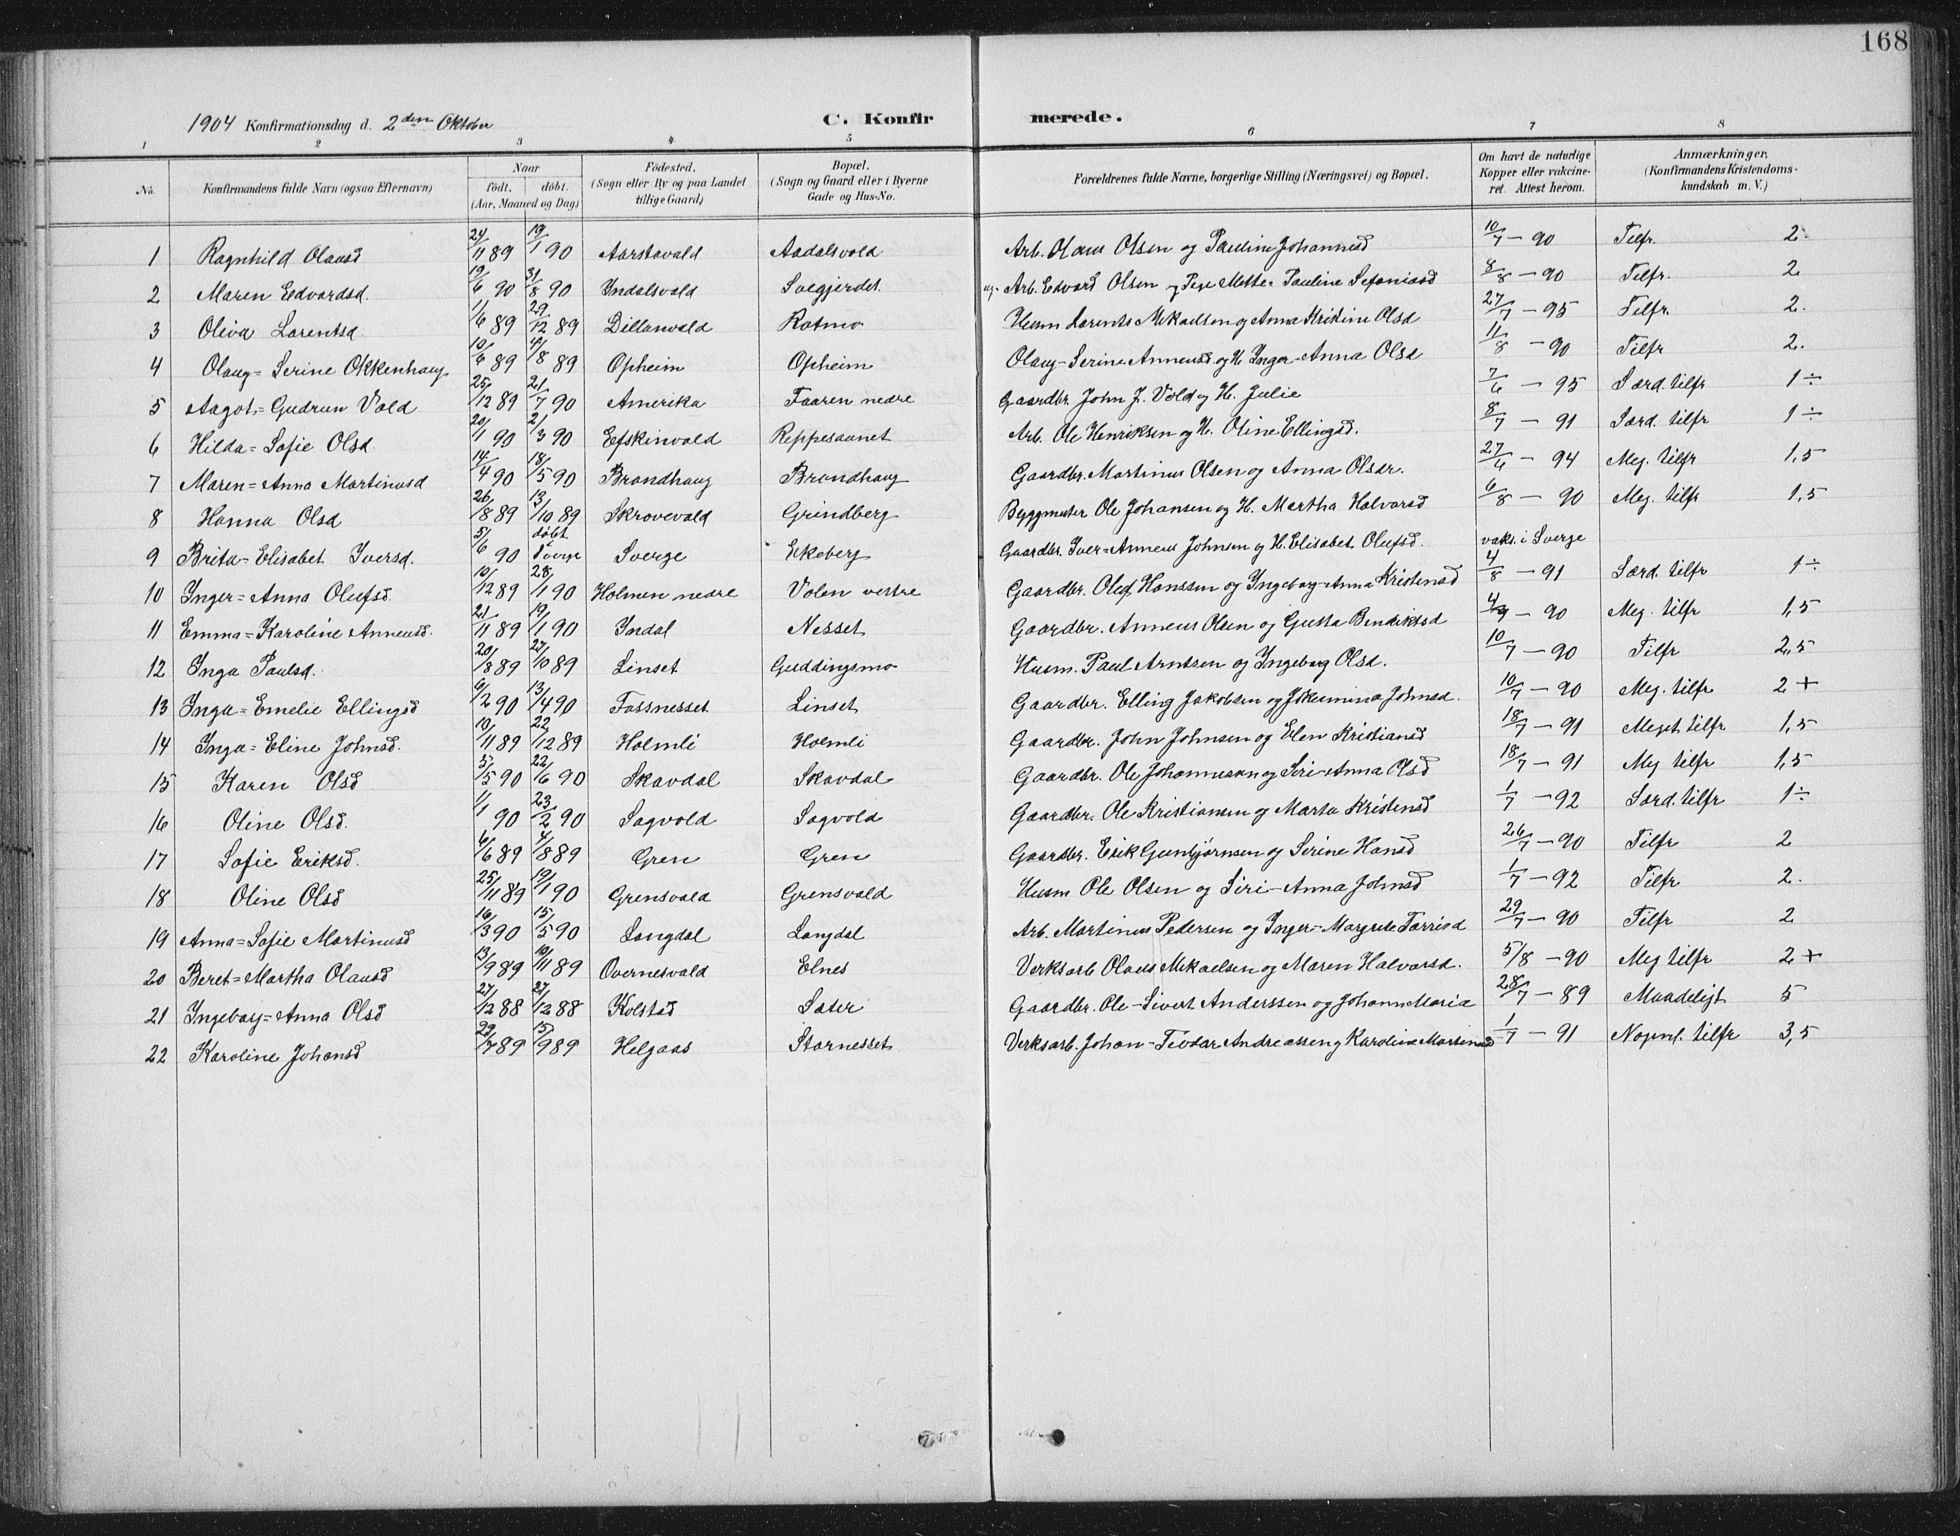 168
1904 Konfirmationsdag d. 2den Oktober C. Konfirmerede.
1 2 3 4 5 6 7 8
No. Konfirmandens fulde Navn (ogsaa Efternavn) Naar født, døbt. (Aar, Maaned og Dag) Fødested. (Sogn eller By og paa Landet tillige Gaard) Bopæl. (Sogn og Gaard eller i Byerne Gade og Hus-No. Forældrenes fulde Navne, borgerlige Stilling (Næringsvei) og Bopæl. Om havt de naturlige Kopper eller vakcineret. Attest herom. Anmærkninger. (Konfirmandens Kristendomskundskab m. V.)
1 Ragnhild Olausd 24/11 89 19/1 90 Aarstavald Aadalsvold Arb. Olaus Olsen og Pauline Johannesd 10/7 – 90 Tilfr. 2.
2 Maren Edvardsd. 19/6 90 31/8 90 Yndalsvald Svegjerdet ug. Arb. Edvard Olsen og Pige Mette-Pauline Sefaniasd 8/8 – 90 Tilfr. 2
3 Oliva Lorentsd 1/6 89 29/12 89 Dillanvald Rotmo Husm Lorents Mikaelsen og Anna Kristine Olsd 27/7 – 95 Tilfr. 2.
4 Olaug=Serine Okkenhaug 10/6 89 4/8 89 Opheim Opheim Olaug-Serine Anneusd og H. Inger-Anna Olsd 11/8 – 90 Tilfr 2.
5 Aagot=Gudrun Vold 25/12 89 21/7 90 Amerika Faaren nedre Gaardbr. John J. Vold og H. Julie 7/6 – 95 Særd. tilfr 1÷
6 Hilda=Sofie Olsd 20/1 90 2/3 90 Efskinvald Reppesaunet Arb. Ole Henriksen og H. Oline Ellingsd. 8/7 – 91 Særd. tilfr 1÷
7 Maren=Anna Martinusd 14/4 90 18/5 90 Brandhaug Brandhaug Gaardbr. Martinus Olsen og Anna Olsdr. 27/6 – 94 Meg. tilfr 1,5
8 Hanna Olsd 26/8 89 13/10 89 Skrovevald Grindberg Byggmester Ole Johansen og H. Martha Halvorsd 6/8 – 90 Meg. tilfr 1,5
9 Brita=Elisabet Iversd. 5/6 90 døbt i Sverge Sverge Ekeberg Gaardbr. Iver-Anneus Johnsen og H. Elisabet Olufsd. vaks. i Sverge
10 Inger=Anna Olufsd. 10/12 89 28/1 90 Holmen nedre Volen vestre Gaardbr. Oluf Hanssen og Ingeborg-Anna Kristensd 4/8 – 91 Særd. tilfr 1÷
11 Emma=Karoline Anneusd. 21/11 89 19/1 90 Yndal Nesset Gaardbr. Anneus Olsen og Gusta Bendiktsd 4/9 – 90 Meg. tilfr 1,5
12 Inga Paulsd. 20/8 89 27/10 89 Linset Guddingsmo Husm. Paul Arntsen og Ingeborg Olsd. 10/7 – 90 Tilfr 2,5
13 Inga=Emelie Ellingsd 6/2 90 13/4 90 Fossnesset Linset Gaardbr. Elling Jakobsen og Jokumina Johnsd. 10/7 – 90 Meg. tilfr 2+
14 Inga=Eline Johnsd. 10/11 89 22/12 89 Holmli Holmli Gaardbr. John Johnsen og Elen Kristiansd 18/7 – 91 Meget tilfr 1,5
15 Karen Olsd 5/5 90 22/6 90 Skavdal Skavdal Gaardbr. Ole Johannesen og Siri-Anna Olsd 18/7 – 91 Meg tilfr 1,5
16 Oline Olsd. 1/1 90 23/2 90 Sagvold Sagvold Gaardbr. Ole Kristiansen og Marta Kristensd 1/7 – 92 Særd. tilfr 1÷
17 Sofie Eriksd. 6/6 89 4/8 89 Gren Gren Gaardbr. Erik Gunbjørnsen og Serine Hansd 26/7 – 90 Tilfr 2
18 Oline Olsd 25/11 89 19/1 90 Grensvald Grensvald Husm Ole Olsen og Siri-Anna Johnsd 1/7 – 92 Tilfr 2.
19 Anna=Sofie Martinusd 16/3 90 15/5 90 Langdal Langdal Arb. Martinus Pedersen og Inger-Margrete Torrisd 29/7 – 90 Tilfr 2
20 Beret=Martha Olausd 13/9 89 10/11 89 Overnesvald Elnes Verksarb Olaus Mikaelsen og Maren Halvorsd. 5/8 – 90 Meg tilfr 2+
21 Ingeborg=Anna Olsd 27/12 88 27/12 88 Kolstad Sæter Gaardbr. Ole-Sivert Anderssen og Johann Maria 28/7 – 89 Maadeligt 5
22 Karoline Johansd 22/7 89 15/9 89 Helgaas Stornesset Verksarb. Johan-Teodor Andreassen og Karoline Martinusd 1/7 – 91 Nogenl. tilfr 3,5